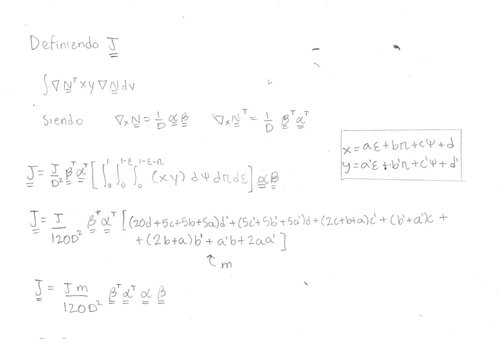 Definiendo J
∫∇Nᵀxy∇Ndv
siendo ∇ₓN = 1/D α β ∇ₓNᵀ = 1/D βᵀ αᵀ
x = aε + bη + cψ + d
y = a'ε + b'η + c'ψ + d'
J = J/D² βᵀ αᵀ [∫₀¹ ∫₀^(1-ε) ∫₀^(1-ε-η) (xy) dψ dη dε] α β
J = J/120D² βᵀ αᵀ [(20d+5c+5b+5a)d' + (5c'+5b'+5a')d + (2c+b+a)c' + (b'+a')c +
+ (2b+a)b' + a'b + 2aa']
↑ m
J = J m/120D² βᵀ αᵀ α β